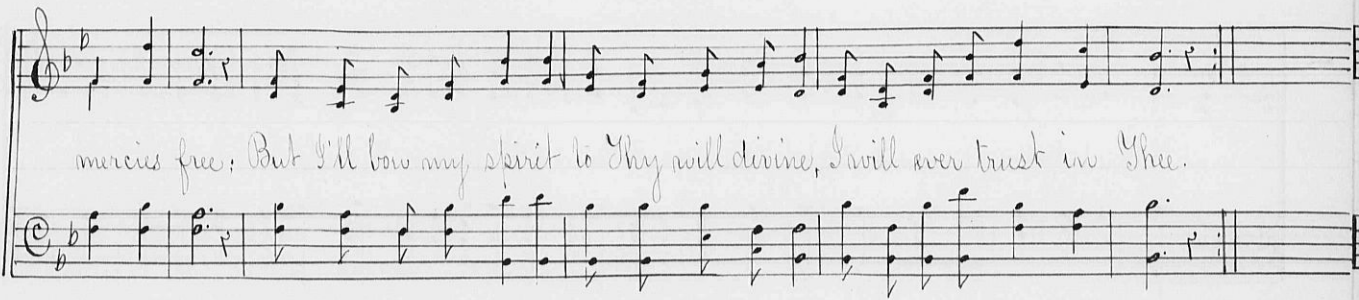 mercies free; But I'll bow my spirit to Thy will divine, I will ever trust in Thee.